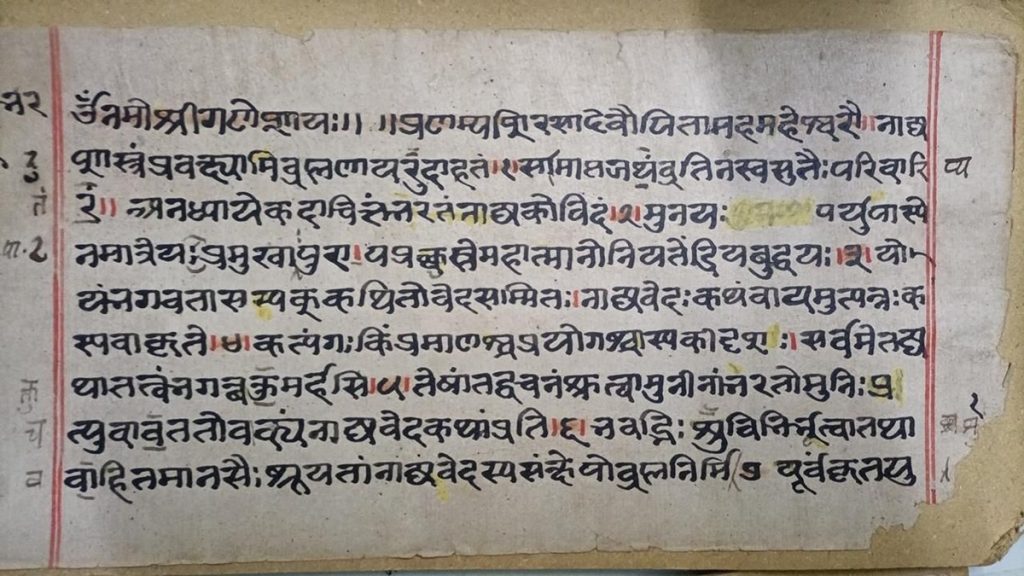 ॐनमोश्रीगणेशायः।। ।।प्रणम्यशिरसादेवौपितामहमहेश्वरौ।।नाट्य
शास्त्रंप्रवक्ष्यामिब्रह्मणायदुदाहृतं।१।समाप्तजप्यंव्रतिनस्वसुतैःपरिवारि
तं।।अनध्यायेकदाचित्तंभरतंनाट्यकोविदं।२।मुनयः पर्युपास्ये
नमात्रेयःप्रमुखापुरा।पप्रच्छुस्तेमहात्मानोनियतेंद्रियबुद्धयः।३।यो
यंभगवतासम्यक्कथितोवेदसम्मितः।नाट्यवेदःकथंवायमुत्पन्नःक
स्यवाकृते।४।कत्यंगःकिंप्रमाणश्चप्रयोगश्चास्यकीदृशः।सर्वमेतद्य
थातत्वंभगवन्वक्तुमर्हसि।५।तेषांतद्वचनंश्रुत्वामुनीनांभरतोमुनिःप्र
त्युवाचततोवाक्यंनाट्यवेदकथांप्रति।६।भवद्भिःशुचिभिर्भूत्वातथा
वाहितमानसैःश्रूयतांनाट्यवेदस्यसंभवोब्रह्मनिर्मि७ पूर्वंकृतयु